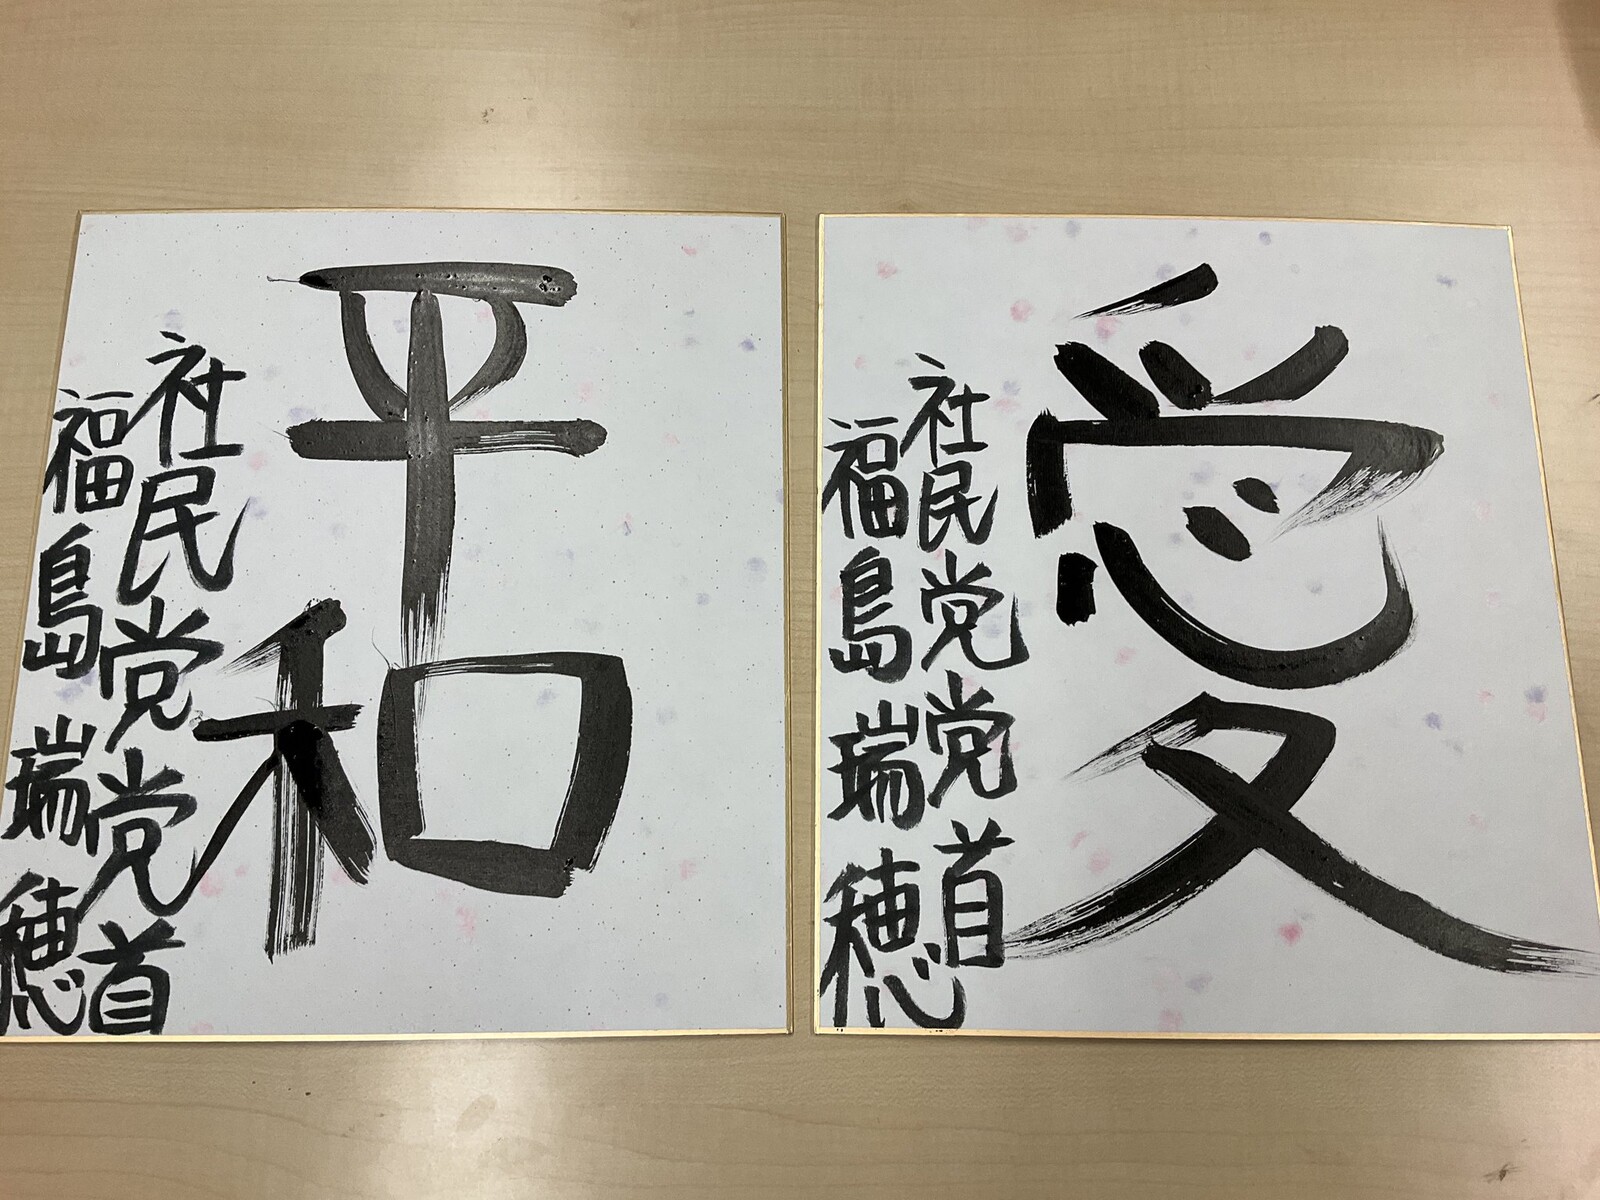 平和
社民党党首
福島瑞穂
愛
社民党党首
福島瑞穂